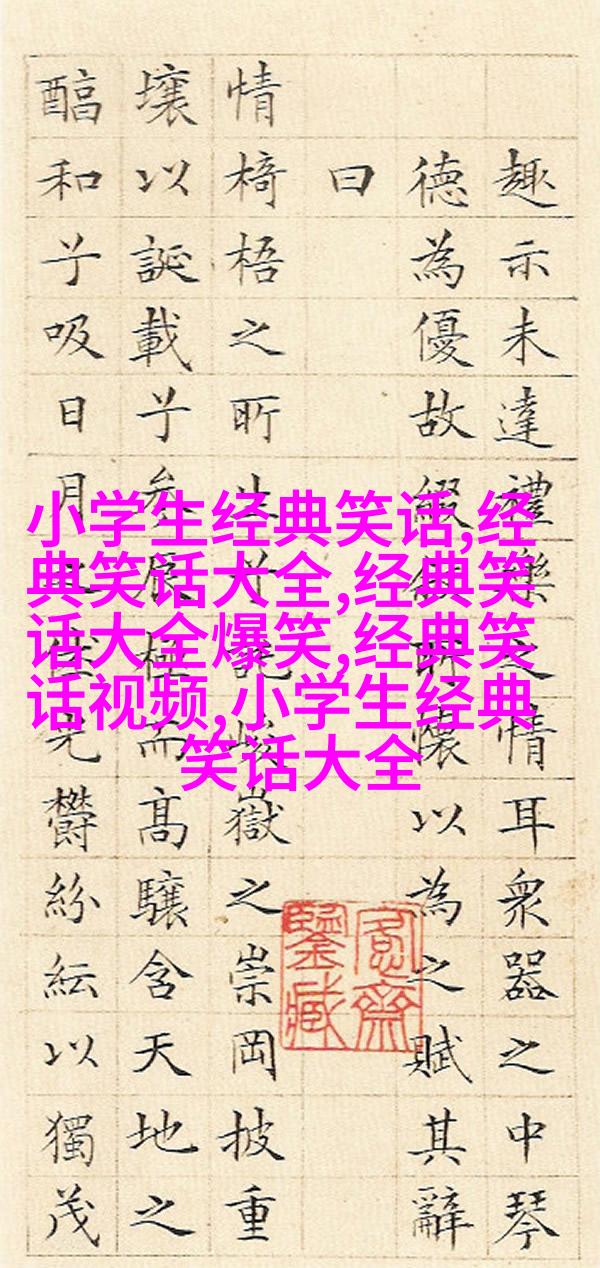 趣示未達禮樂之情耳衆器之中琴
德為優故綴敘所懷以為之賦其辭
曰
情椅梧之所生兮託峻嶽之崇岡披重
壤以誕載兮參辰極而高驤含天地之
醕和兮吸日月之休光鬱紛紜以獨茂
小学生经典笑话,经
典笑话大全,经典笑
话大全爆笑,经典笑
话视频,小学生经典
笑话大全
愙齋鑒藏